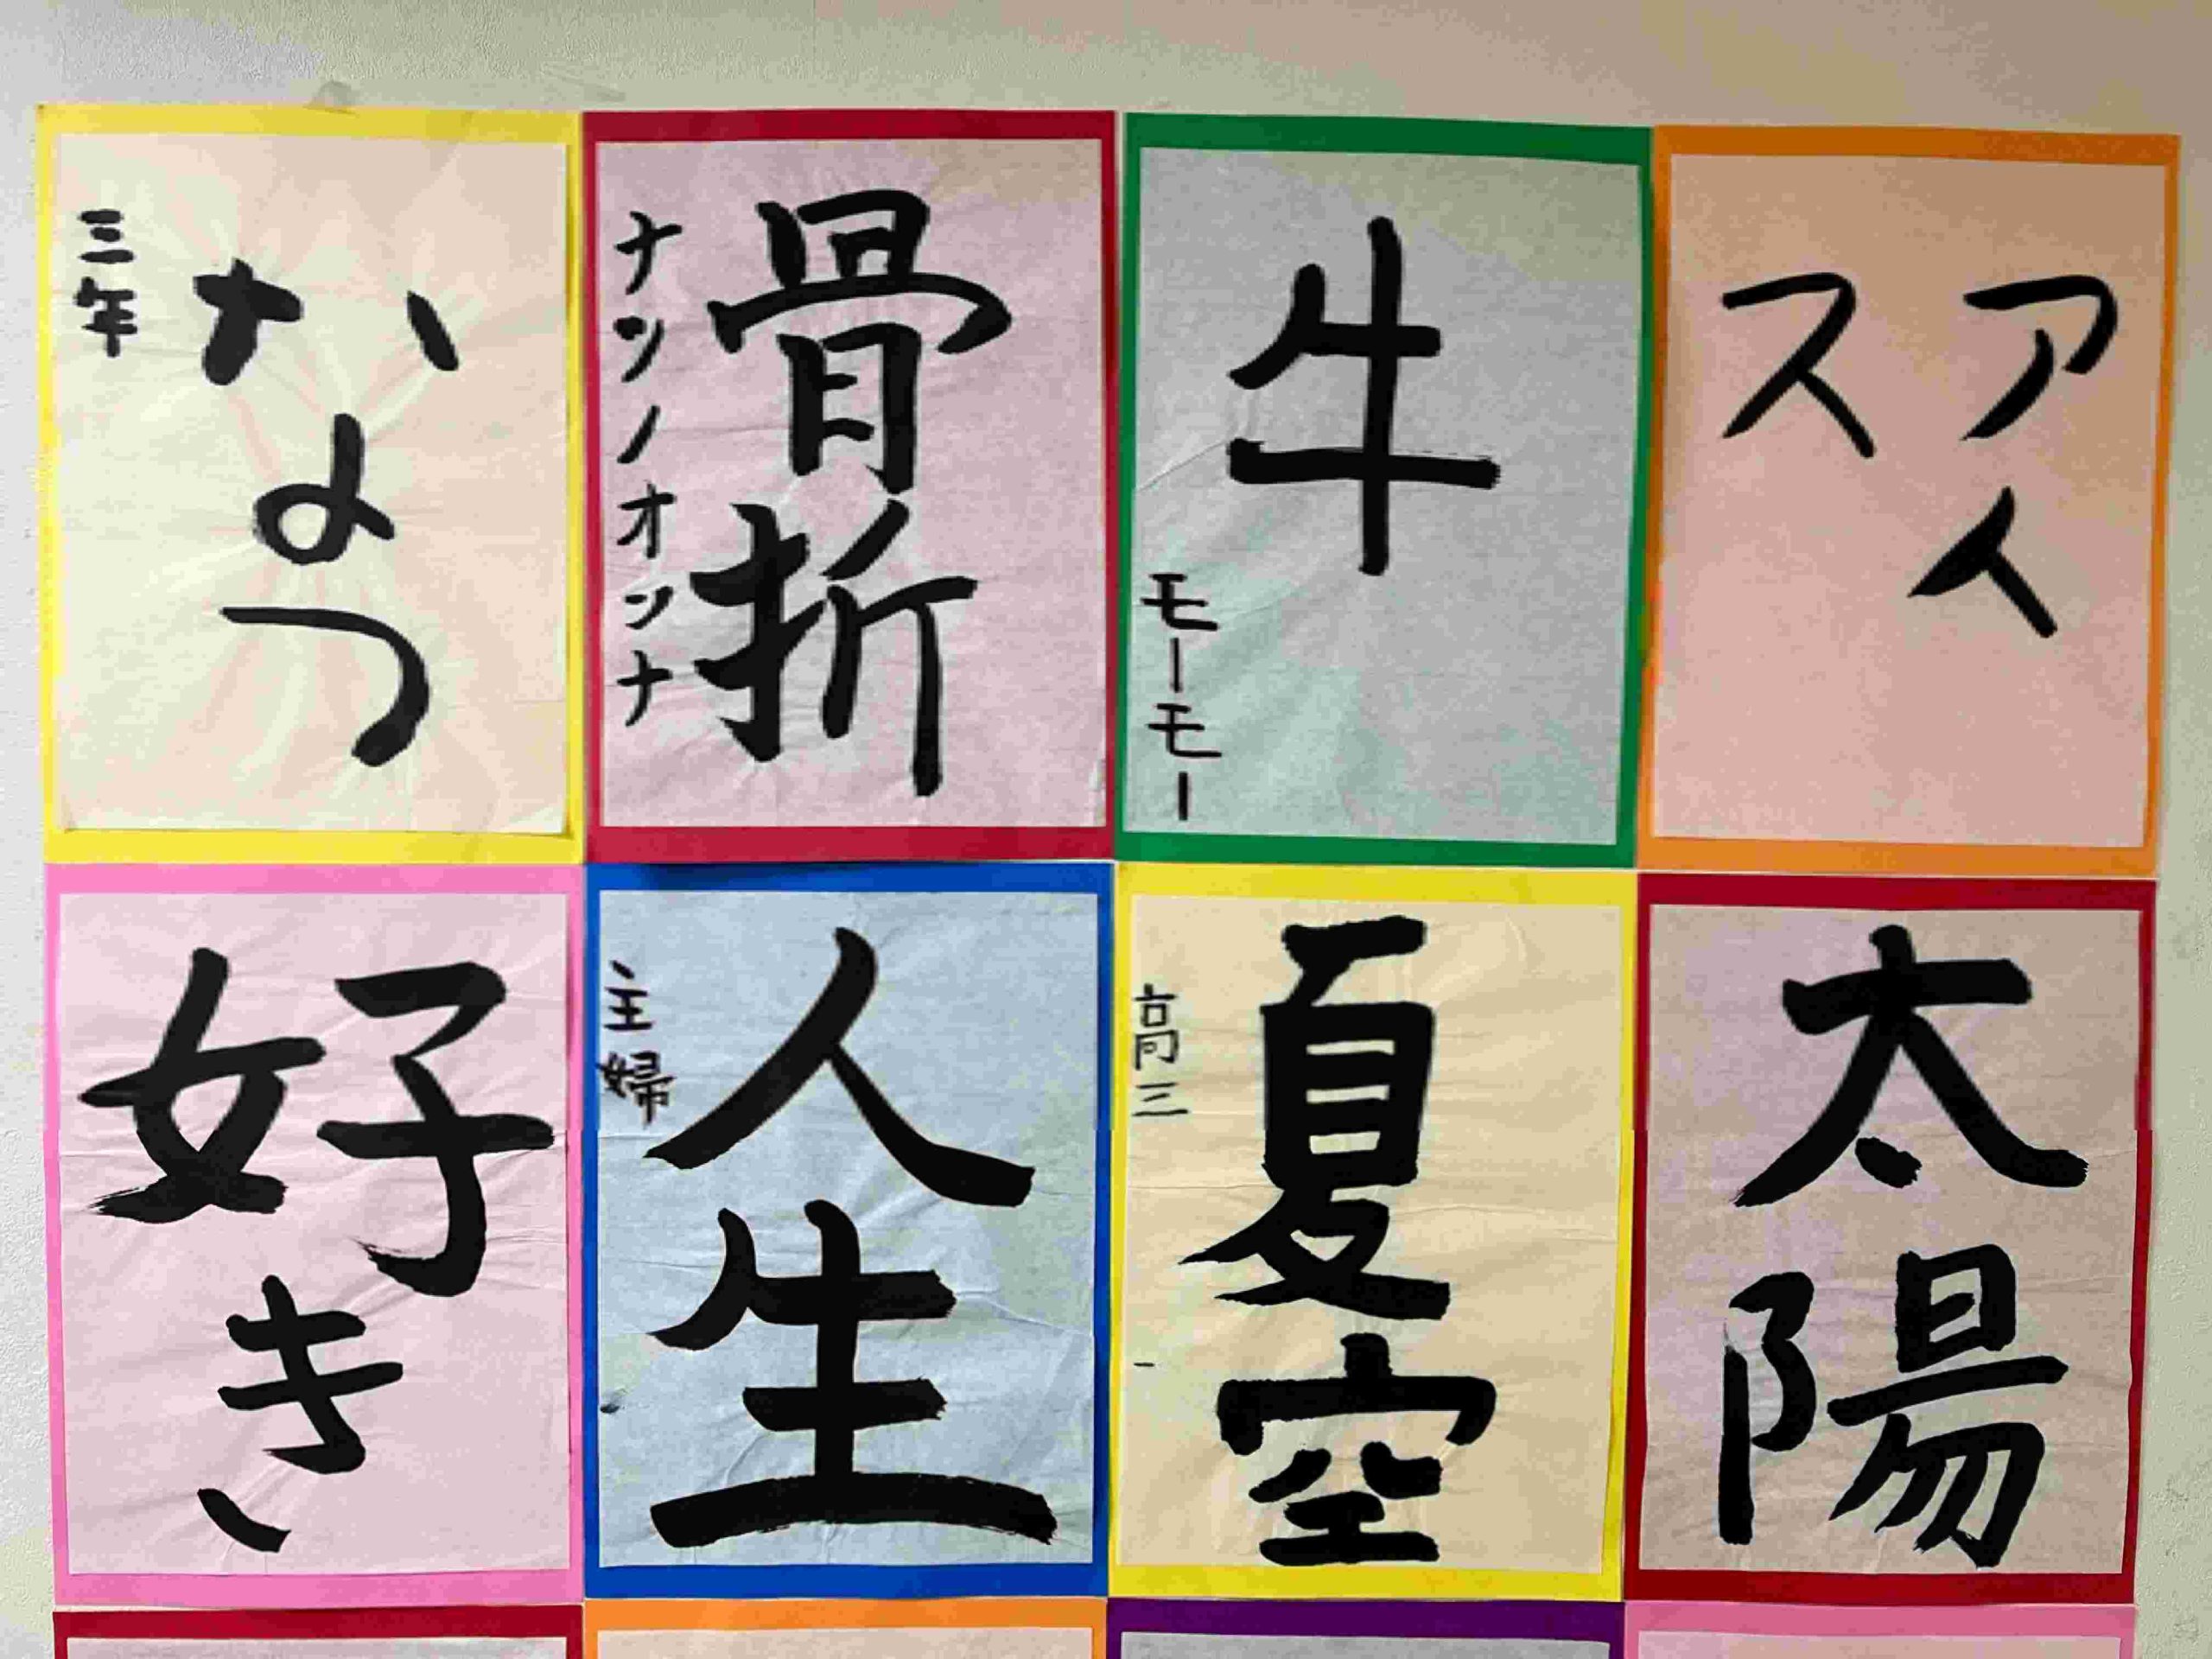 アイ
ス
牛
モーモー
骨折
ナンノオンナ
なつ
三年
太陽
夏空
高三
人生
主婦
好き